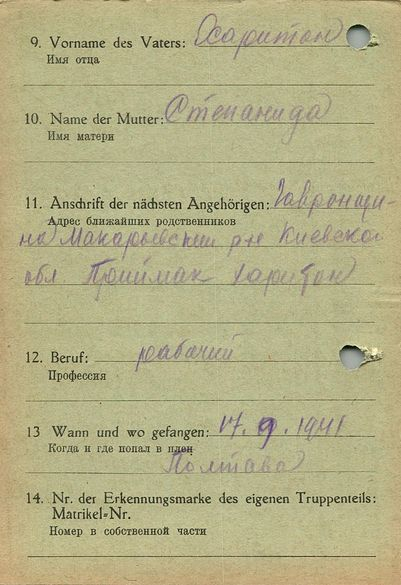 9. Vorname des Vaters: Харитон
Имя отца
10. Name der Mutter: Степанида
Имя матери
11. Anschrift der nächsten Angehörigen: Гавронщи-
Адрес ближайших родственников
на Макарьевский р-н Киевско
обл Приймак Харитон
12. Beruf: рабочий
Профессия
13 Wann und wo gefangen: 17. 9. 1941
Когда и где попал в плен
Полтава
14. Nr. der Erkennungsmarke des eigenen Truppenteils:
Matrikel-Nr.
Номер в собственной части